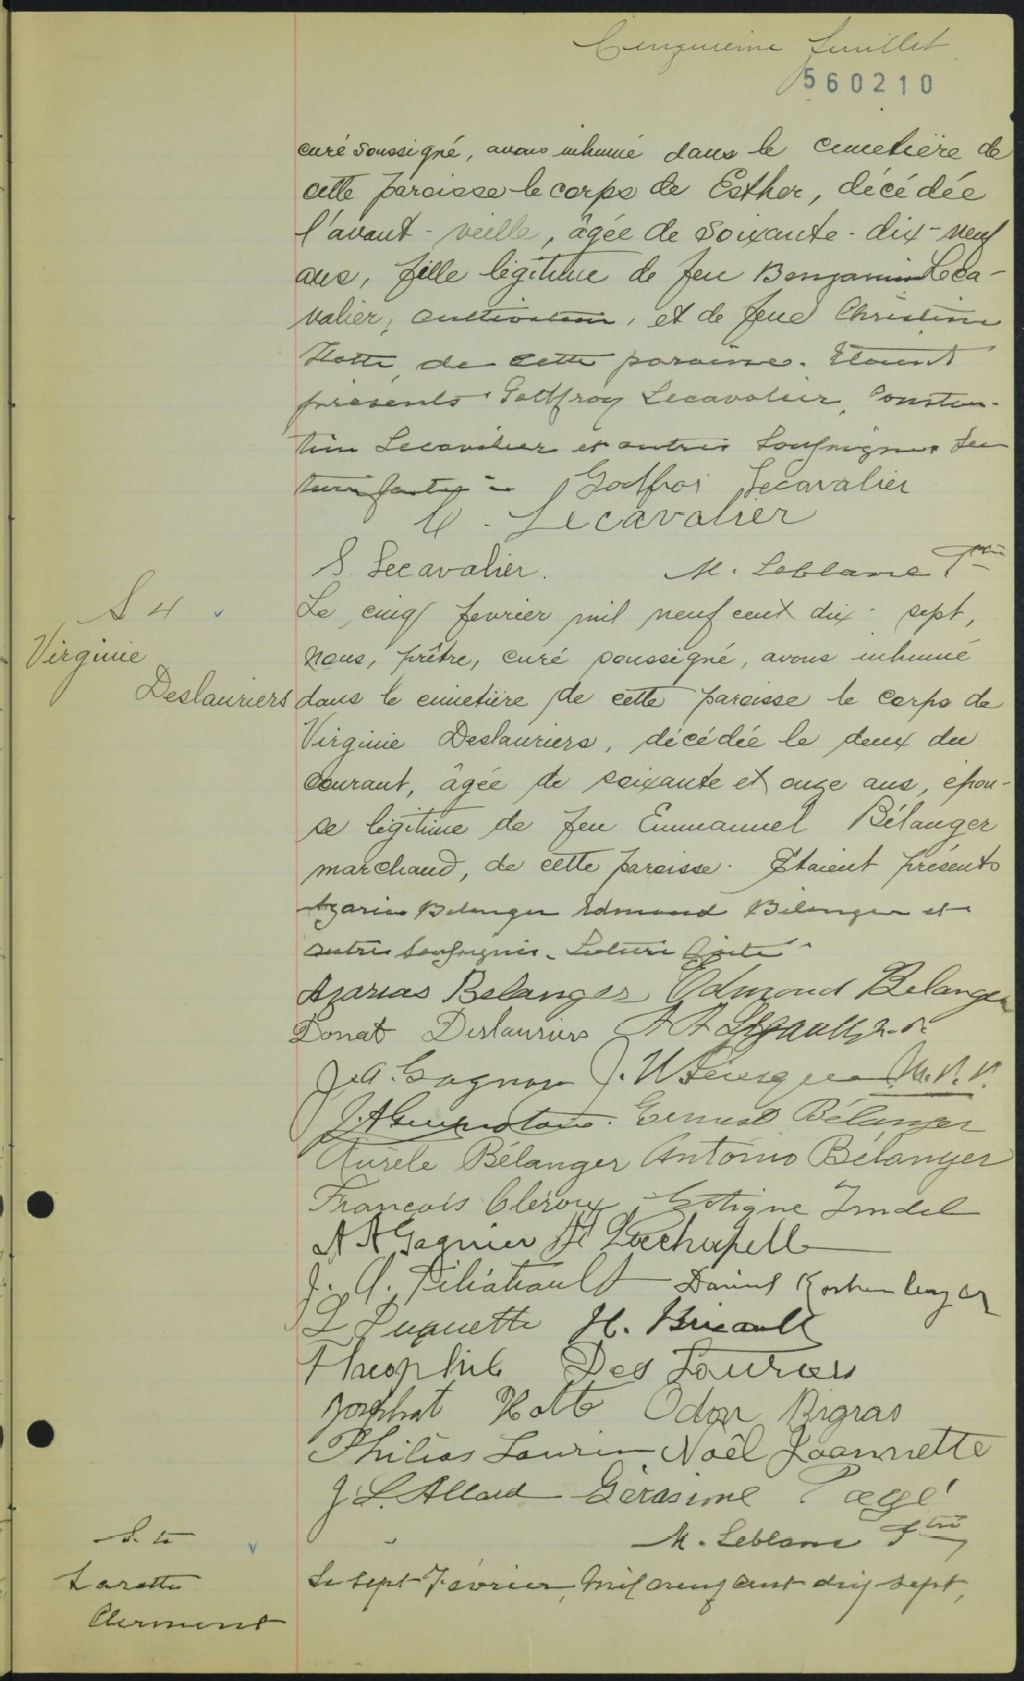 Cinquième feuillet
560210
curé soussigné, avons inhumé dans le cimetière de
cette paroisse le corps de Esther, décédée
l'avant-veille, âgée de soixante-dix-neuf
ans, fille légitime de feu Benjamin Leca-
valier, cultivateur, et de feue Christine
Hotte, de cette paroisse. Etaient
présents Godfroy Lecavalier, Constan-
tin Lecavalier et autres soussignés. Lec-
ture faite.
Godfroi Lecavalier
C. Lecavalier
S. Lecavalier.
M. Leblanc Ptre
S 4
Virginie
Deslauriers
Le cinq fevrier mil neuf cent dix-sept,
nous, prêtre, curé soussigné, avons inhumé
dans le cimetière de cette paroisse le corps de
Virginie Deslauriers, décédée le deux du
courant, âgée de soixante et onze ans, épou-
se légitime de feu Emmanuel Bélanger
marchand, de cette paroisse. Etaient présents
Azarias Belanger Edmond Bélanger et
autres soussignés. Lecture faite
Azarias Belanger Edmond Belanger
Donat Deslauriers A A Legault
J. A. Gagnon J. W. M.P.P.
Ernest Bélanger
Aurèle Bélanger Antonio Bélanger
François Cléroux Trudel
A A Gagnier H Lachapelle
J. A. Filiatrault Daniel
L Paquette H. Briault
Theophile Des Lauriers
Josphat Hotte Odon Bigras
Philias Laurin Noël Joannette
J. L. Allard Gérasime Pagé
M. Leblanc Ptre
Clermont
Le sept Février, mil neuf cent dix sept,